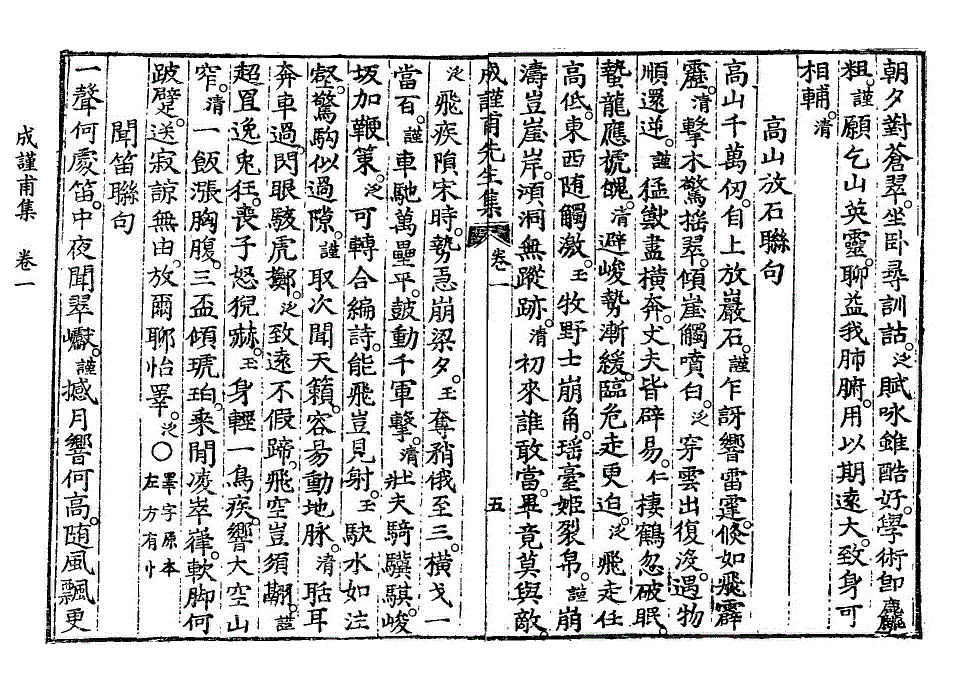 朝夕對蒼翠。坐卧尋訓詁。泛賦咏雖酷好。學術卽麤
粗。謹願乞山英靈。聊益我肺腑。用以期遠大。致身可
相輔。清
高山放石聯句
高山千萬仞。自上放巖石。謹乍訝響雷霆。倐如飛霹
靂。清擊木驚摇翠。傾崖觸噴白。泛穿雲出復沒。遇物
順還逆。謹猛獸盡橫奔。丈夫皆辟易。仁棲鶴忽破眠。
蟄龍應褫魄。清避峻勢漸緩。臨危走更迫。泛飛走任
高低。東西随觸激。玉牧野士崩角。瑶臺姬裂帛。謹崩
濤豈崖岸。澒洞無蹤跡。清初來誰敢當。畢竟莫與敵。
成謹甫先生集 卷一 五
泛飛疾隕宋時。勢急崩梁夕。玉奪矟俄至三。橫戈一
當百。謹車馳萬壘平。鼓動千軍擊。清壯夫騎驥騏。峻
坂加鞭策。泛可轉合編詩。能飛豈見射。玉駃水如注
壑。驚駒似過隙。謹取次聞天籟。容易動地脉。清聒耳
奔車過。閃眼駭虎擲。泛致遠不假蹄。飛空豈須翮。謹
超罝逸兎狂。喪子怒猊赫。玉身輕一鳥疾。響大空山
窄。清一飯漲胸腹。三盃傾琥珀。乘閒凌崒嵂。軟脚何
跛躄。送寂諒無由。放爾聊怡睪。泛○睪字原本左方有忄
聞笛聯句
一聲何處笛。中夜聞翠巘。謹撼月響何高。随風飄更
成謹甫集 卷一